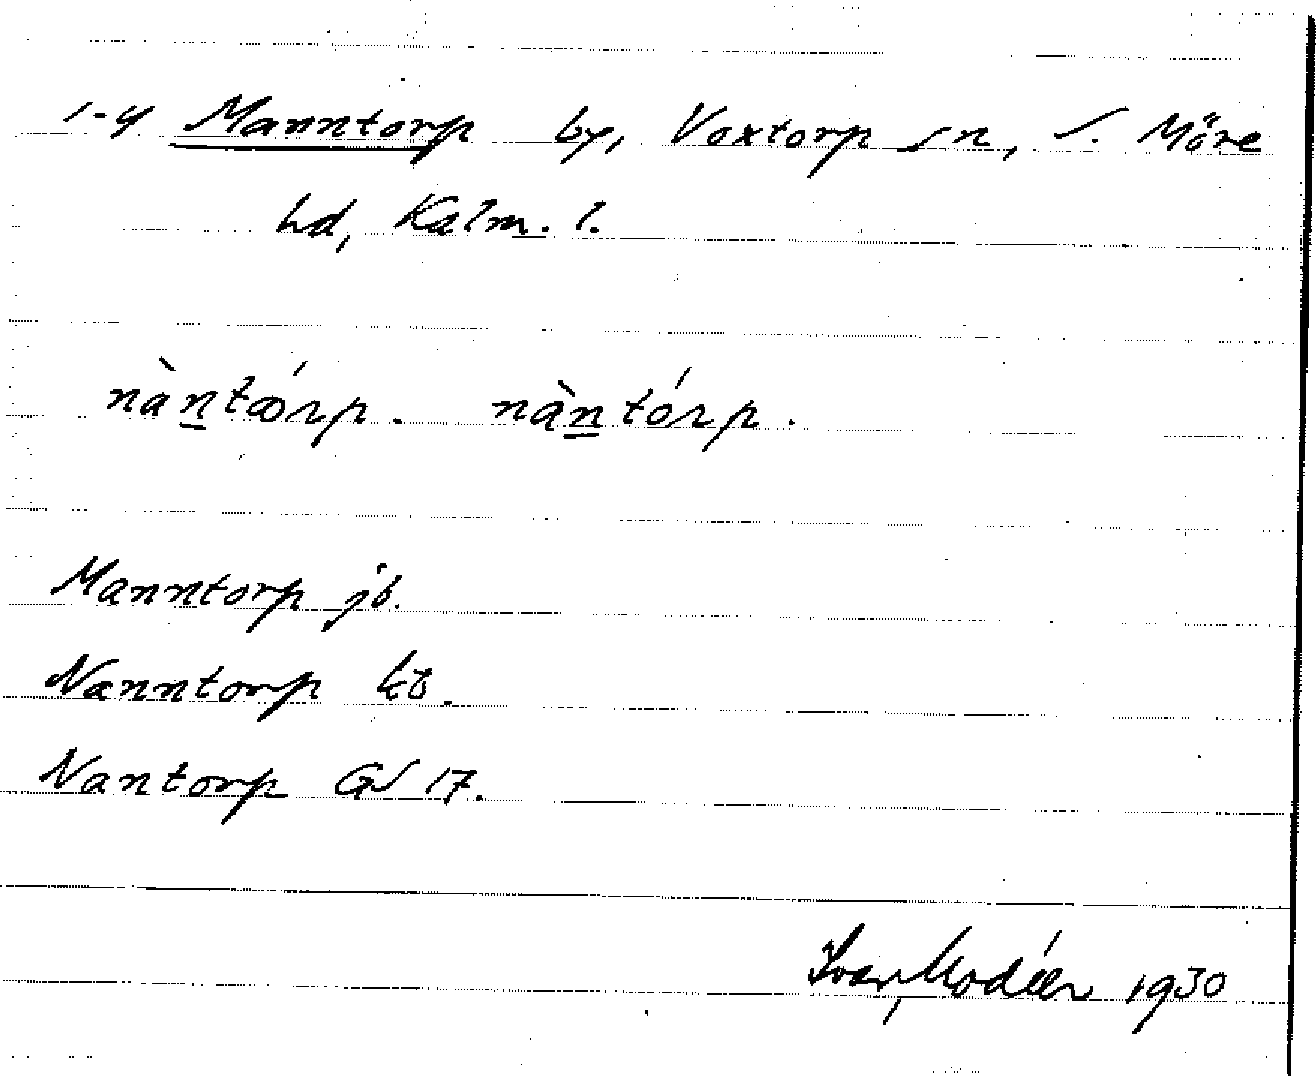 1-4 Manntorp by, Voxtorp sn, S. Möre
hd, Kalm. l.
nàn̲tǿrp. nàn̲tórp.
Manntorp jb.
Nanntorp kb.
Nantorp GS 17.
Ivar Modéer 1930